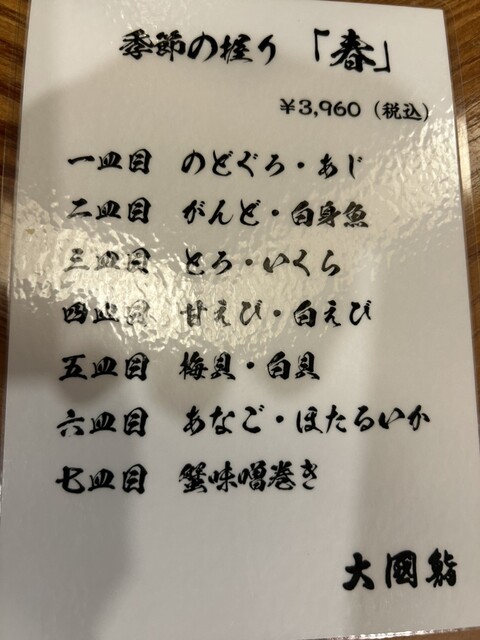 季節の握り 「春」
¥3,960(税込)
一皿目 のどぐろ・あじ
二皿目 がんど・白身魚
三皿目 とろ・いくら
四皿目 甘えび・白えび
五皿目 梅貝・白貝
六皿目 あなご・ほたるいか
七皿目 蟹味噌巻き
大國鮨